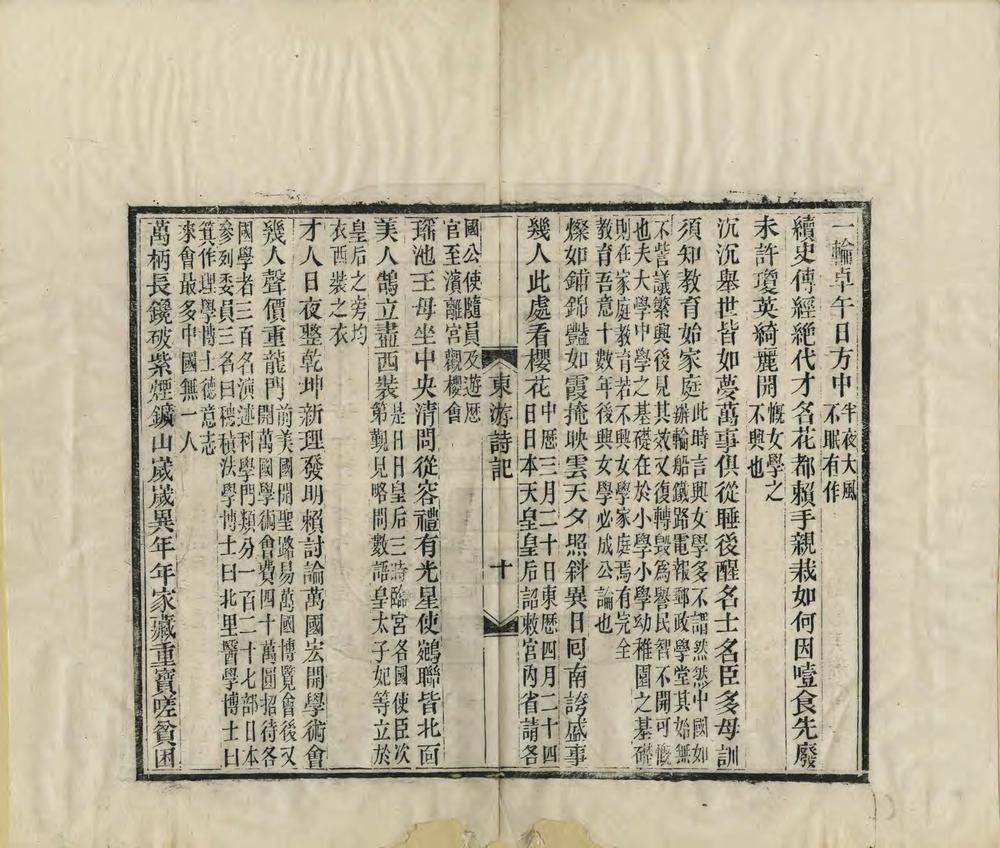 一輪卓午日方中半夜大風
不眠有作
續史傳經絕代才名花都賴手親栽如何因噎食先廢
未許瓊英綺麗開慨女學之
不興也
沉沉舉世皆如夢萬事俱從睡後醒名士名臣多母訓
須知教育始家庭此時言興女學多不謂然然中國如
辦輪船鐵路電報郵政學堂其始無
不訾議繁興後見其效又復轉毀為譽民智不開可慨
也夫大學中學之基礎在於小學小學幼稚園之基礎
則在家庭教育若不興女學家庭焉有完全
教育吾意十數年後興女學必成公論也
燦如鋪錦豔如霞掩映雲天夕照斜異日囘南誇盛事
幾人此處看櫻花中歷三月二十日東歷四月二十四
日日本天皇皇后詔敕宮內省請各
國公使隨員及遊歷
官至濱離宮觀櫻會
瑤池王母坐中央清問從容禮有光星使鵷聯皆北面
美人鵠立盡西裝是日日皇后三時臨宮各國使臣次
第覲見略問數語皇太子妃等立於
皇后之旁均
衣西裝之衣
才人日夜整乾坤新理發明賴討論萬國宏開學術會
幾人聲價重龍門前美國開聖路易萬國博覽會後又
開萬國學術會費四十萬圓招待各
國學者三百名演述科學門類分一百二十七部日本
參列委員三名曰穗積法學博士曰北里醫學博士曰
箕作理學博士德意志
來會最多中國無一人
萬柄長鑱破紫煙鑛山歲歲異年年家藏重寶嗟貧困
東游詩記
十